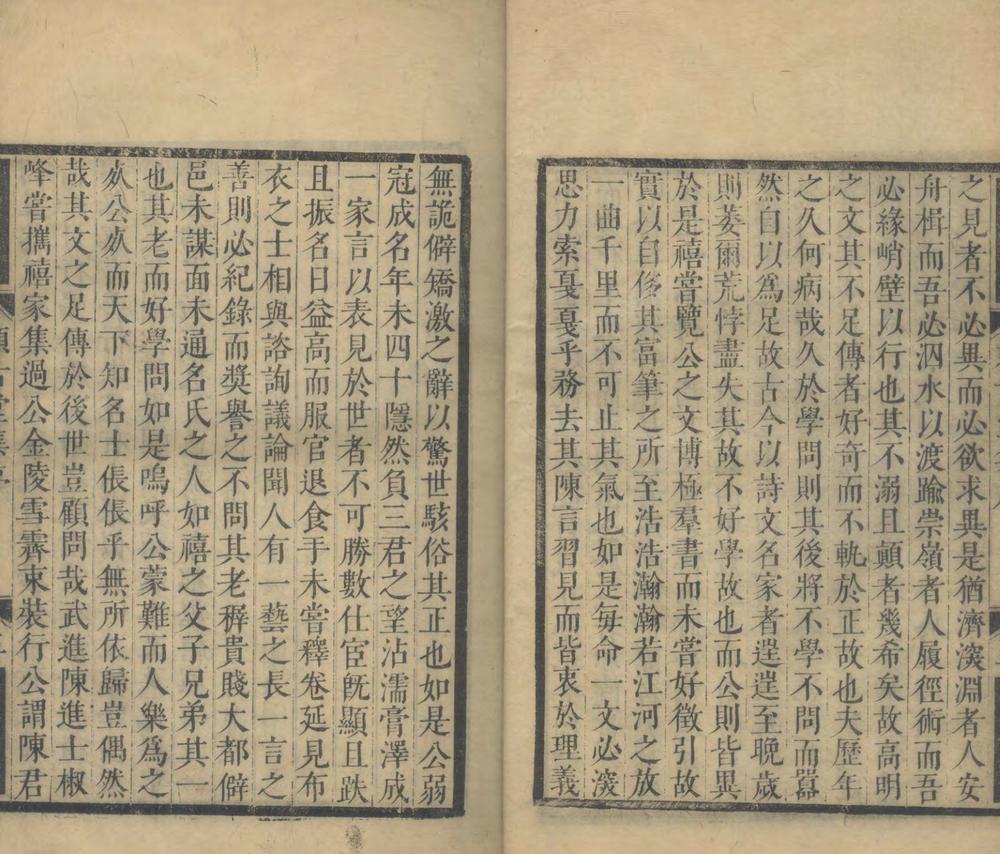 之見者不必異而必欲求異是猶濟㴱淵者人安
舟楫而吾必泅水以渡踰崇嶺者人履徑術而吾
必緣峭壁以行也其不溺且顛者幾希矣故高明
之文其不足傳者好奇而不軌於正故也夫歷年
之久何病哉久於學問則其後將不學不問而囂
然自以爲足故古今以詩文名家者遑遑至晚歲
則萎爾荒悖盡失其故不好學故也而公則皆異
於是禧嘗覽公之文博極羣書而未嘗好徵引故
實以自侈其富筆之所至浩浩瀚瀚若江河之放
一曲千里而不可止其氣也如是每命一文必㴱
思力索戛戛乎務去其陳言習見而皆衷於理義
無詭僻矯激之辭以驚世駭俗其正也如是公弱
冠成名年未四十隱然負三君之望沾濡膏澤成
一家言以表見於世者不可勝數仕宦旣顯且跌
且振名日益高而服官退食于未嘗釋卷延見布
衣之士相與諮詢議論聞人有一藝之長一言之
善則必紀錄而奬譽之不問其老穉貴賤大都僻
邑未謀面未通名氏之人如禧之父子兄弟其一
也其老而好學問如是嗚呼公蒙難而人樂爲之
㱠公㱠而天下知名士倀倀乎無所依歸豈偶然
哉其文之足傳於後世豈顧問哉武進陳進士椒
峰嘗攜禧家集過公金陵雪霽束裝行公謂陳君